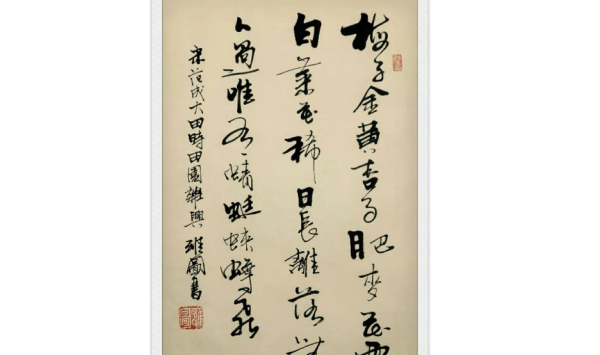 梅子金黃杏子肥麥花雪
白菜花稀日長離落無
人過唯有蜻蜓蛺蝶飛
宋范成大四時田園雜興 書